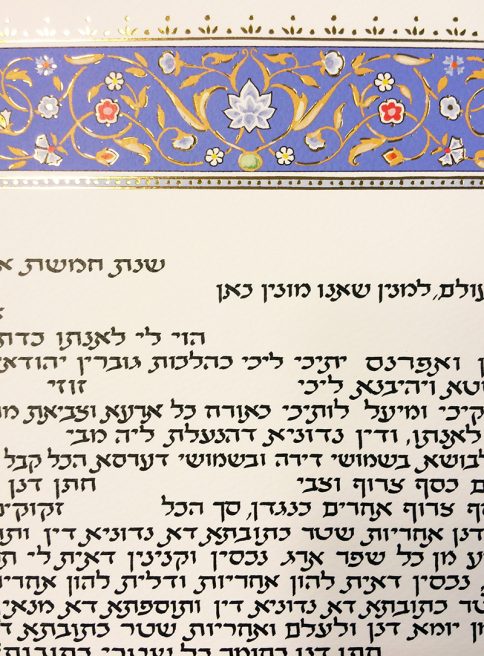 שנת חמשת
עולם, למנין שאנו מונין כאן
הוי לי לאנתו כדת
ואפרנס יתיכי ליכי כהלכות גוברין יהודאי
ויהיבנא ליכי זוזי
ומיעל לותיכי כאורח כל ארעא וצביאת
לאנתו, ודין נדוניא דהנעלת ליה מבי
לבושא בשמושי דירה ובשמושי דערסא הכל קבל
כסף צרוף וצבי חתן דנן
צרוף אחרים כנגדן, סך הכל זקוקים
דנן אחריות שטר כתובתא דא נדוניא דין
מן כל שפר ארג נכסין וקנינין דאית לי
נכסין דאית להון אחריות ודלית להון
כתובתא דא נדוניא דין ותוספתא דא
יומא דנן ולעלם ואחריות שטר כתובתא
חתן דנן כחומר כל שטרי כתובות